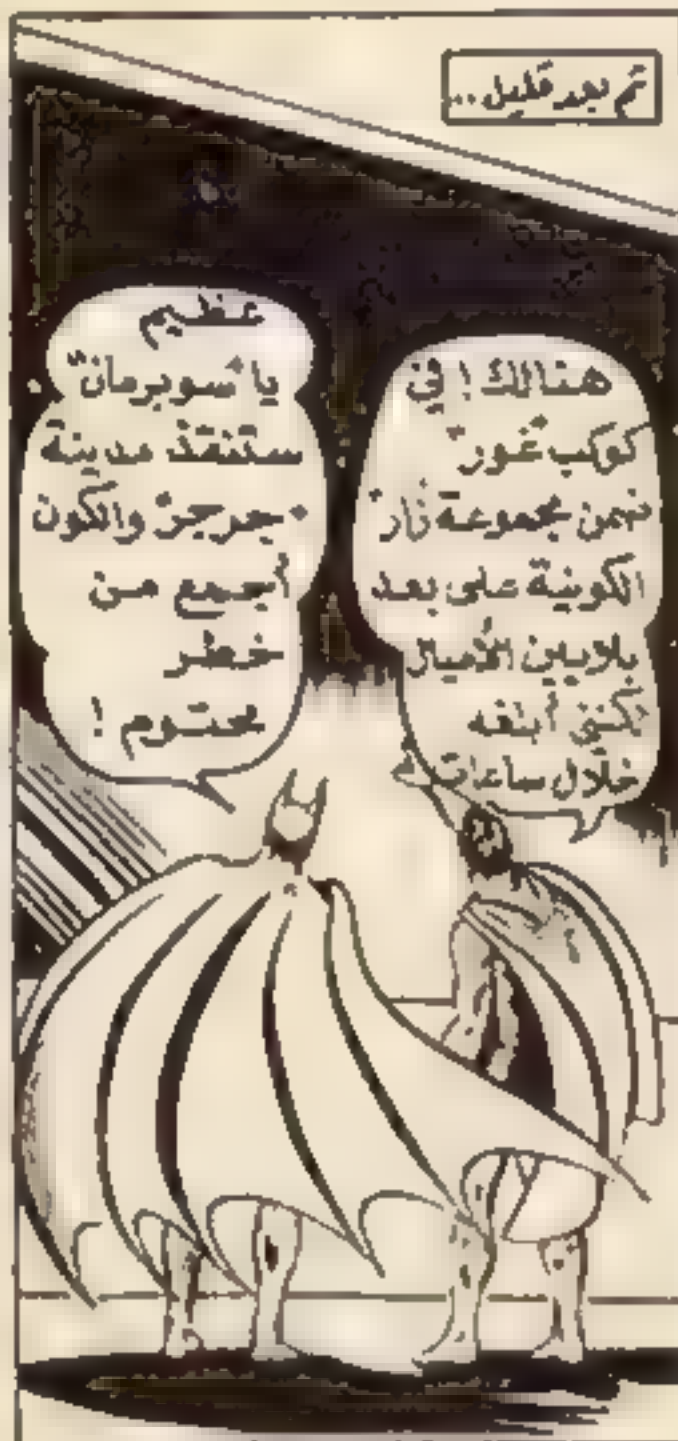 ثم بعد قليل..
هنالك! في
كوكب "غور"
ضمن مجموعة "زار"
الكونية على بعد
بلايين الأميال
لكنني أبلغه
خلال ساعات
عظيم
يا "سوبرمان"
ستنقذ مدينة
"جرجر" والكون
أجمع من
خطر
محتوم!